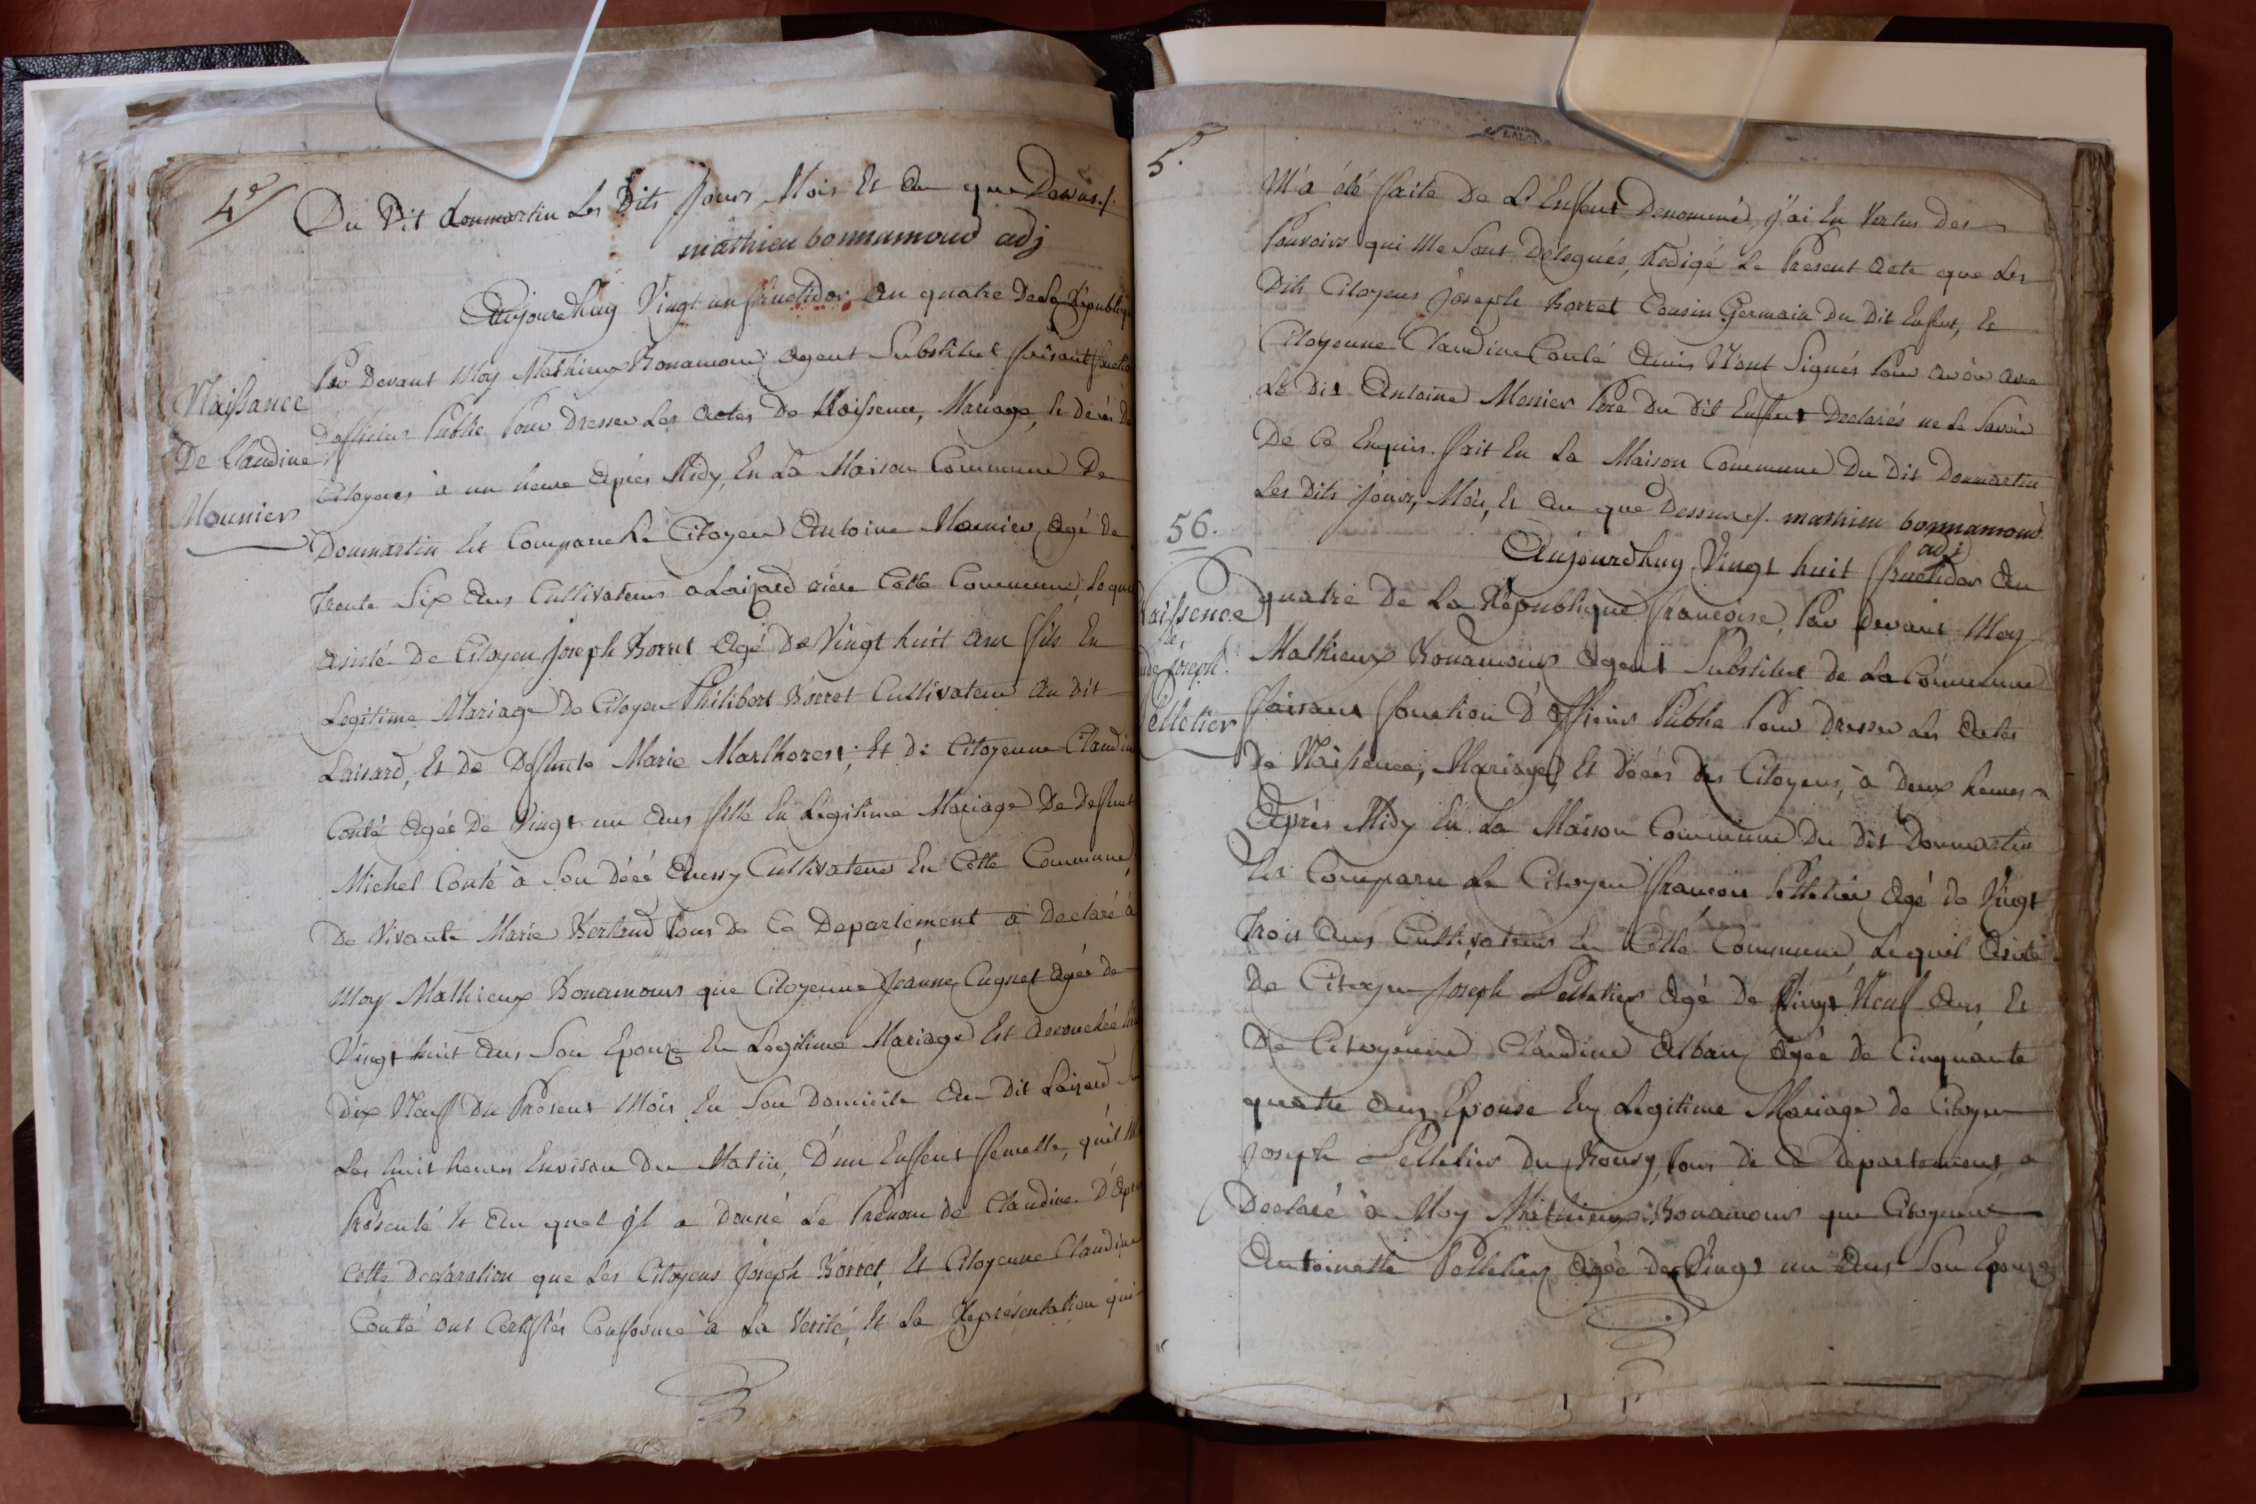 4e
Du Dit donmartin Les Dits Jours Mois Et An que Dessus./.
mathieu bonnamour adj
Aujourdhuy Vingt un fructidor An quatre De La Républiq
Par Devant Moy Mathieux Bonamour Agent Substitut faisant fonctio
Naissance
D'officier Public Pour Dresser Les Actes De Naissence, Mariage, Et décés De
De Claudine
Citoyens à un heure Aprés Midy, En La Maison Commune De
Mounier
Donmartin Est Comparu Le Citoyen Antoine Mounier Agé De
Trente Six Ans Cultivateur a Laisard riére Cette Commune, Lequel
Asisté De Citoyen Joseph Borret Agé De Vingt huit Ans fils En
Legitime Mariage De Citoyen Philibert Borret Cultivateur Au Dit
Laisard, Et De Deffunte Marie Marlhorest, Et De Citoyenne Claudin
Conté Agée De Vingt un Ans fille En Legitime Mariage De Deffunt
Michel Conté à Son Décé Aussy Cultivateur En Cette Commune,
De Vivante Marie Bertrand tous De Ce Departement a Declaré à
Moy Mathieux Bonamour que Citoyenne Jeanne Cugnet Agée De
Vingt huit Ans Son Epouze En Legitime Mariage Est Accouchée
Dix Neuf Du Présent Mois En Son Domicile Au Dit Laisard
Les huit heures Environ Du Matin, D'un Enffent ffemelle, qu'il M
Présenté Et Au quel Jl a Donné Le Prénom De Claudine. D'Aprés
Cette Declaration que Les Citoyens Joseph Borret, Et Citoyenne Claudine
Conté ont Certiffiés Confforme à La Verité, Et La Représentation qui
5e
M'a été ffaite De L'Enffent Denommé, j'ai En Vertus Des
Pouvoirs qui Me Sont Délegués, Redigé Le Présent Acte que Les
Dits Citoyens Joseph Borret Cousin Germain Du Dit Enffent, Et
Citoyenne Claudine Conté Amis N'ont Signés Pour Avoir Avec
Le Dit Antoine Monier Pére Du Dit Enffent Declarés ne Le Savoir
De Ce Enquis. ffait En La Maison Commune Du Dit Donmartin
Les Dits Jours, Mois, Et An que Dessus./. mathieu bonnamour
adj
56.
Aujourdhuy Vingt huit ffructidor An
Naissence
quatre De La République ffrancoise, Par Devant Moy
de
Mathieux Bonamour Agent Substitut De La Commune
Joseph
ffaisant ffonction D'officier Public Pour Dresser Les Actes
Pelletier
De Naissence, Mariage, Et décés Des Citoyens, à Deux heures
Aprés Midy En La Maison Commune Du Dit Donmartin
Est Comparu Le Citoyen ffrancois Pelletier Agé De Vingt
Trois Ans Cultivateur En Cette Commune, Lequel Asisté
De Citoyen Joseph Pelletier Agé De Vingt Neuf Ans Et
De Citoyenne Claudine Alban Agée De Cinquante
quatre Ans Epouse En Legitime Mariage De Citoyen
Joseph Pelletier Du Bousy, tous De Ce Departement, a
Declaré à Moy Mathieux Bonamour que Citoyenne
Antoinette Pelletier Agée De Vingt un Ans Son Epouze